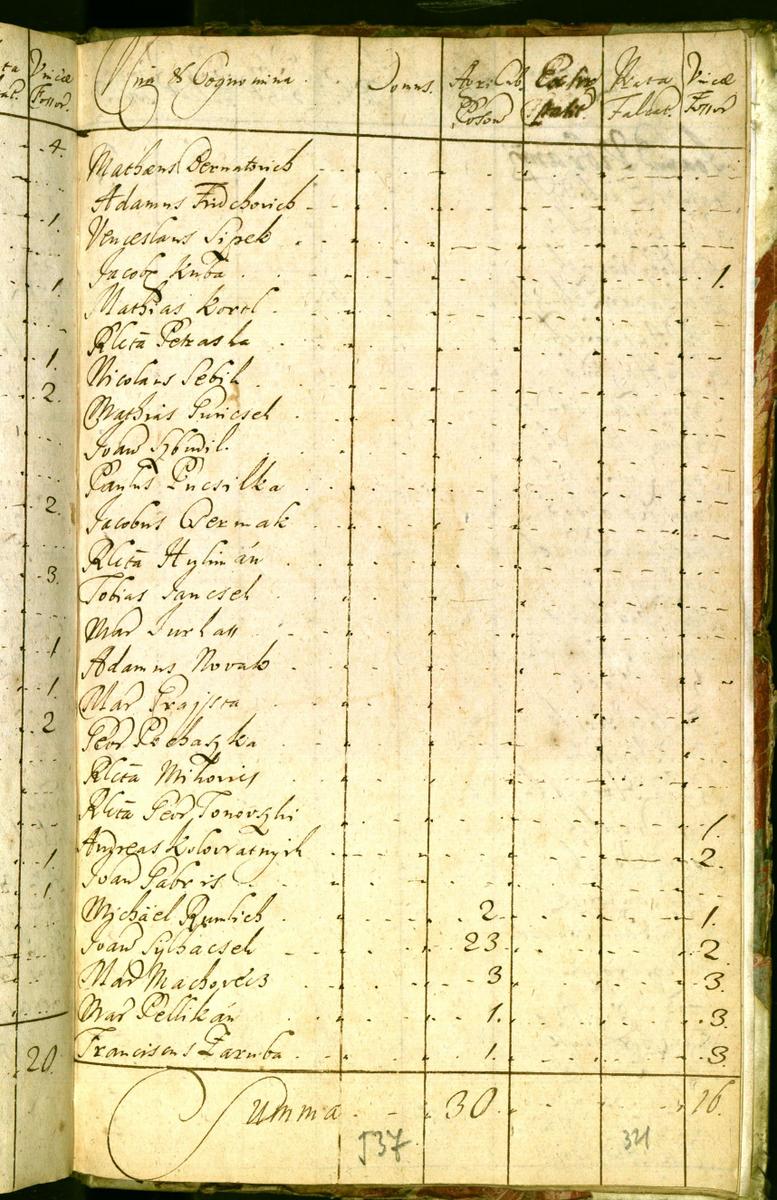 ta Vineæ
Fossor.
4.
1.
1.
1.
2.
2.
3.
1
1
2
1
1
20.
Nina & Cognomina. Domus. Poson Prata Falcat. Vineæ Fossor
Mathæus Bernatovich
Adamus Fridchovich
Venceslaus Sipek
Jacob Kuba 1.
Mathias Korel
Rlcta Petraska
Nicolaus Sebik
Mathias Guricseh
Joan
Paulus Pucsilka
Jacobus Czermak
Rlcta Hyliman
Tobias Jancseh
Mar Jurkass
Adamus Novak
Mar Grajssa
Geor Pechaszka
Rlcta Mihovics
Rlcta Geor Tonovszki 1.
Andreas Kolovratnyik 2.
Joan Gabris
Michael Rumlich 2. 1.
Joan Sylhacseh 23. 2.
Mar Machovecz 3 3.
Mar Pellikán 1. 3.
Franciscus Zaruba 1. 3.
Summa 30. 16.
537 321